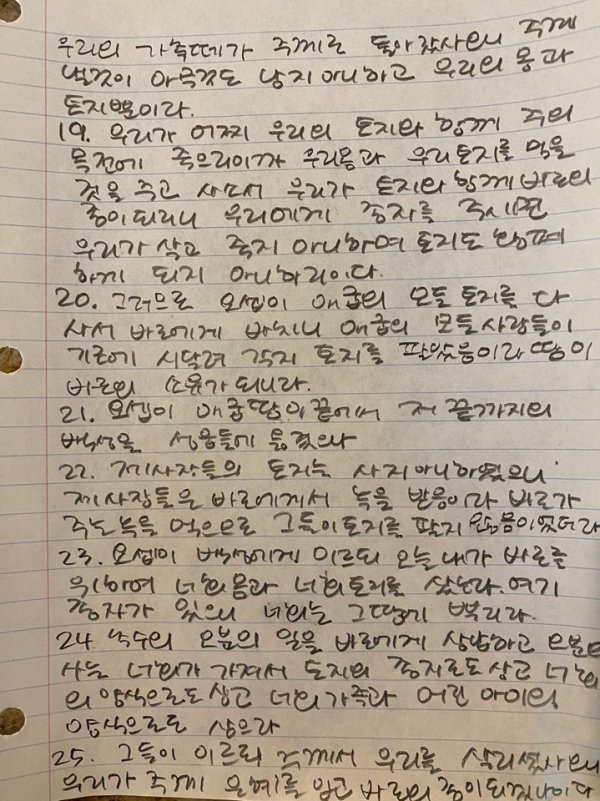 우리의 가축떼가 주께로 돌아갔사오니 주께
낼것이 아무것도 남지 아니하고 우리의 몸과
토지뿐이라.
19. 우리가 어찌 우리의 토지와 함께 주의
목전에 죽으리이까 우리몸과 우리토지를 먹을
것을 주고 사소서 우리가 토지와 함께 바로의
종이되리니 우리에게 종자를 주시면
우리가 살고 죽지 아니하며 토지도 황폐
하게 되지 아니하리이다.
20. 그러므로 요셉이 애굽의 모든 토지를 다
사서 바로에게 바치니 애굽의 모든사람들이
기근에 시달려 각기 토지를 팔았음이라 땅이
바로의 소유가 되니라.
21. 요셉이 애굽땅 이끝에서 저 끝까지의
백성을 성읍들에 옮겼으나
22. 제사장들의 토지는 사지아니하였으니
제사장들은 바로에게서 녹을 받음이라 바로가
주는녹을 먹으므로 그들이토지를 팔지 않음이었더라
23. 요셉이 백성에게 이르되 오늘 내가 바로를
위하여 너희몸과 너희토지를 샀노라. 여기
종자가 있으니 너희는 그땅에 뿌리라.
24 추수의 오분의 일을 바로에게 상납하고 오분의
사는 너희가 가져서 토지의 종자로도 삼고 너희
의 양식으로도 삼고 너희가족과 어린 아이의
양식으로도 삼으라
25. 그들이 이르되 주께서 우리를 살리셨사오니
우리가 주께 은혜를 입고 바로의 종이되겠나이다